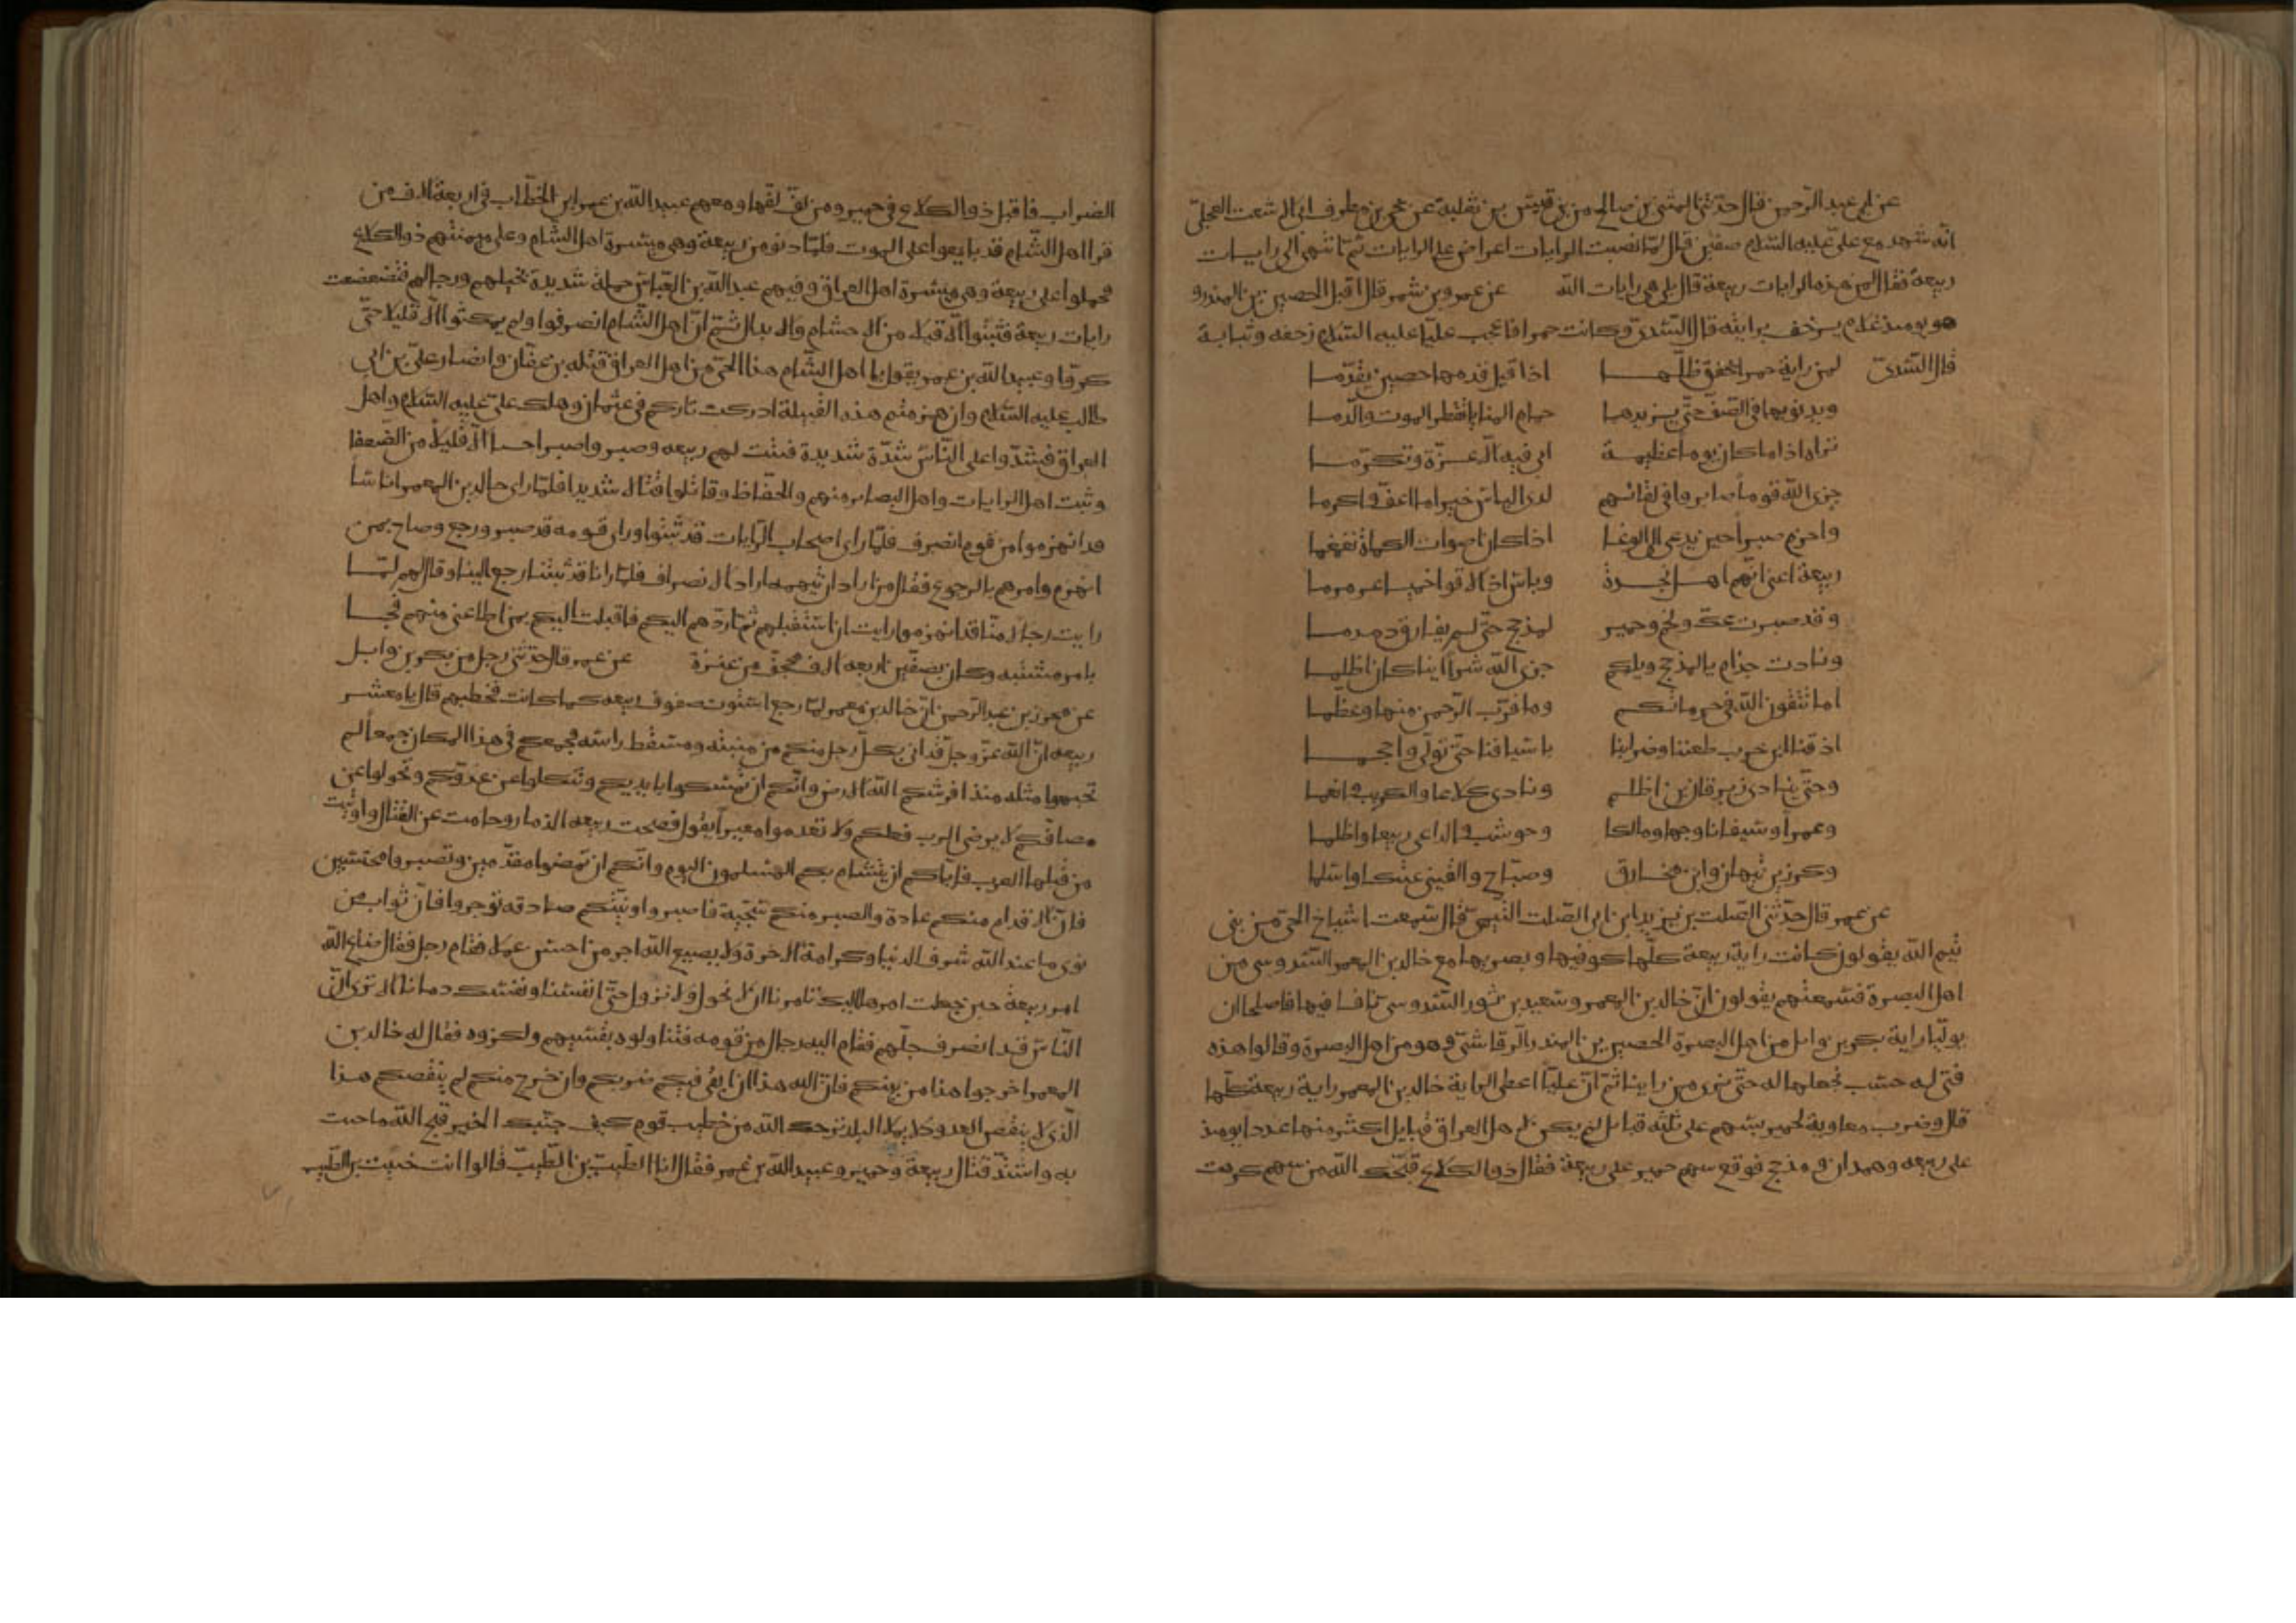 عن ابي عبد الرحمن قال حدثني المثنى بن صالح من بني قيس بن ثعلبة عن يحيى بن مطرف ابي الاشعث العجلي
انه شهد مع علي عليه السلام صفين قال لما نصبت الرايات اعترض علي الرايات ثم انتهى الى رايات
ربيعة فقال لمن هذه الرايات ربيعة قال بل هي رايات الله عن عمرو بن شمر قال اقبل الحصين بن المنذر و
هو يومئذ غلام يزحف برايته قال السدي وكانت حمرا فاعجب عليا عليه السلام زحفه وثباته
قال السدي لمن راية حمرا يخفق ظلها اذا قيل قدمها حصين تقدما
ويدنو بها في الصف حتى يزيرها حمام المنايا تقطر الموت والدما
تراه اذا ما كان يوم عظيمة ابى فيه الا عزة وتكرما
جزى الله قوما صابروا في لقائهم لدى الباس خيرا ما اعف واكرما
واحزم صبرا حين يدعى الى الوغا اذا كان اصوات الكماة تغمغما
ربيعة اعني انهم اهل نجدة وباس اذا لاقوا خميسا عرمرما
وقد صبرت عك ولخم وحمير لمذحج حتى لم يفارق دم دما
ونادت جذام يا لمذحج ويلكم جزى الله شرا اينا كان اظلما
اما تتقون الله في حرماتكم وما قرب الرحمن منها وعظما
اذقنا ابن حرب طعننا وضرابنا باسيافنا حتى تولى واحجما
وحتى ينادي زبرقان بن اظلم ونادى كلاعا والكريب وانعما
وعمرا وسفيانا وجهما ومالكا وحوشب والداعي ربيعا واظلما
وكرز بن تيهان وابن مخارق وصباح والقيني عتكا واسلما
عن عمر قال حدثني الصلت بن يزيد ابن ابي الصلت التيمي قال سمعت اشياخ الحي من بني
تيم الله يقولون كانت راية ربيعة كلها كوفيها وبصريها مع خالد بن المعمر السدوسي من
اهل البصرة فسمعتهم يقولون ان خالد بن المعمر وسعيد بن ثور السدوسي تنافسا فيها فاصطلحا ان
يوليا راية بكر بن وائل من اهل البصرة الحصين بن المنذر الرقاشي وهو من اهل البصرة وقالوا هذه
فتى له حسب نجعلها له حتى نرى من راينا ثم ان عليا اعطى الراية خالد بن المعمر راية ربيعة كلها
قال وضرب معاوية لحمير بسهم على ثلثة قبائل لم يكن لاهل العراق قبايل اكثر منها عددا يومئذ
على ربيعه وهمدان ومذحج فوقع سهم حمير على ربيعة فقال ذو الكلاع قبحك الله من سهم كرهت
الضراب فاقبل ذو الكلاع في حمير ومن لف لفها ومعهم عبيد الله بن عمر ابن الخطاب في اربعة الاف من
قرا اهل الشام قد بايعوا على الموت فلما دنو من ربيعة وهي ميسرة اهل الشام وعلى ميمنتهم ذو الكلاع
فحملوا على ربيعة وهي ميسرة اهل العراق وفيهم عبد الله بن العباس حملة شديدة بخيلهم ورجالهم فتضعضعت
رايات ربيعة فثبتوا الا قليلا من الاحشام والابدال ثم ان اهل الشام انصرفوا ولم يمكثوا الا قليلا حتى
كروا وعبيد الله بن عمر يقول يا اهل الشام هذا الحي من اهل العراق قتلة بن عفان وانصار علي بن ابي
طالب عليه السلام وان هزمتم هذه القبيلة ادركت تاركم في عثمان وهلك علي عليه السلام واهل
العراق فشدوا على الناس شدة شديدة فثبت لهم ربيعه وصبروا صبرا حسنا الا قليلا من الضعفا
وثبت اهل الرايات واهل البصاير منهم والحفاظ وقاتلوا قتالا شديدا فلما راى خالد بن المعمر اناسا
قد انهزموا من قومه انصرف فلما راى اصحاب الرايات قد ثبتوا وراى قومه قد صبرو رجع وصاح بمن
انهزم وامرهم بالرجوع فقال من اراد ان يتهمه اراد الانصراف فلما رانا قد ثبتنا رجع الينا وقال لهم لما
رايت رجالا منا قد انهزموا رايت ان استقبلهم ثم اردهم اليكم فاقبلت اليكم بمن اطاعني منهم فجا
بامر مشتبه وكان بصفين اربعه الاف محجف من عنزة عن عمر قال حدثني رجل من بكر بن وايل
عن محرز بن عبد الرحمن ان خالد بن معمر لما رجع استوت صفوف ربيعه كما كانت فخطبهم قال يا معشر
ربيعه ان الله عز وجل قد اتى بكل رجل منكم من منبته ومسقط راسه فجمعكم في هذا المكان جمعا لم
تجمعوا مثله منذ افرشكم الله الارض وانكم ان تمسكوا بايديكم وتنكلوا عن عدوكم وتحولوا عن
مصافكم لا يرضى الرب فعلكم ولا تعدموا معيرا يقول فضحت ربيعه الذمار وحامت عن القتال واوتيت
من قبلها العرب فاياكم ان يتشام بكم المسلمون اليوم وانكم ان تمضوا مقدمين وتصبروا محتسبين
فان الاقدام منكم عادة والصبر منكم سجية فاصبروا ونيتكم صادقه توجروا فان ثواب من
نوى ما عند الله شرف الدنيا وكرامة الاخرة ولا يضيع الله اجر من احسن عملا فقام رجل فقال ضاع والله
امر ربيعة حين جعلت امرها اليك تامرنا ان لا نحول ولا نزول حتى انفسنا ونسفك دمانا الا ترى ان
الناس قد انصرف جلهم فقام اليه رجال من قومه فتناولوه بقسيهم ولكزوه فقال له خالد بن
المعمر اخرجوا هذا من بينكم فان اليه هذا ان يبقى فيكم ضربكم وان خرج منكم لم ينقصكم هذا
الذي لا ينقص العدد ولا يملا البلد نزحك الله من خطيب قوم كيف جنبك الخير قبح الله ما جيت
به واشتد قتال ربيعة وحمير وعبيد الله بن عمر فقال انا الطيب بن الطيب قالوا انت خبيث بن الطيب